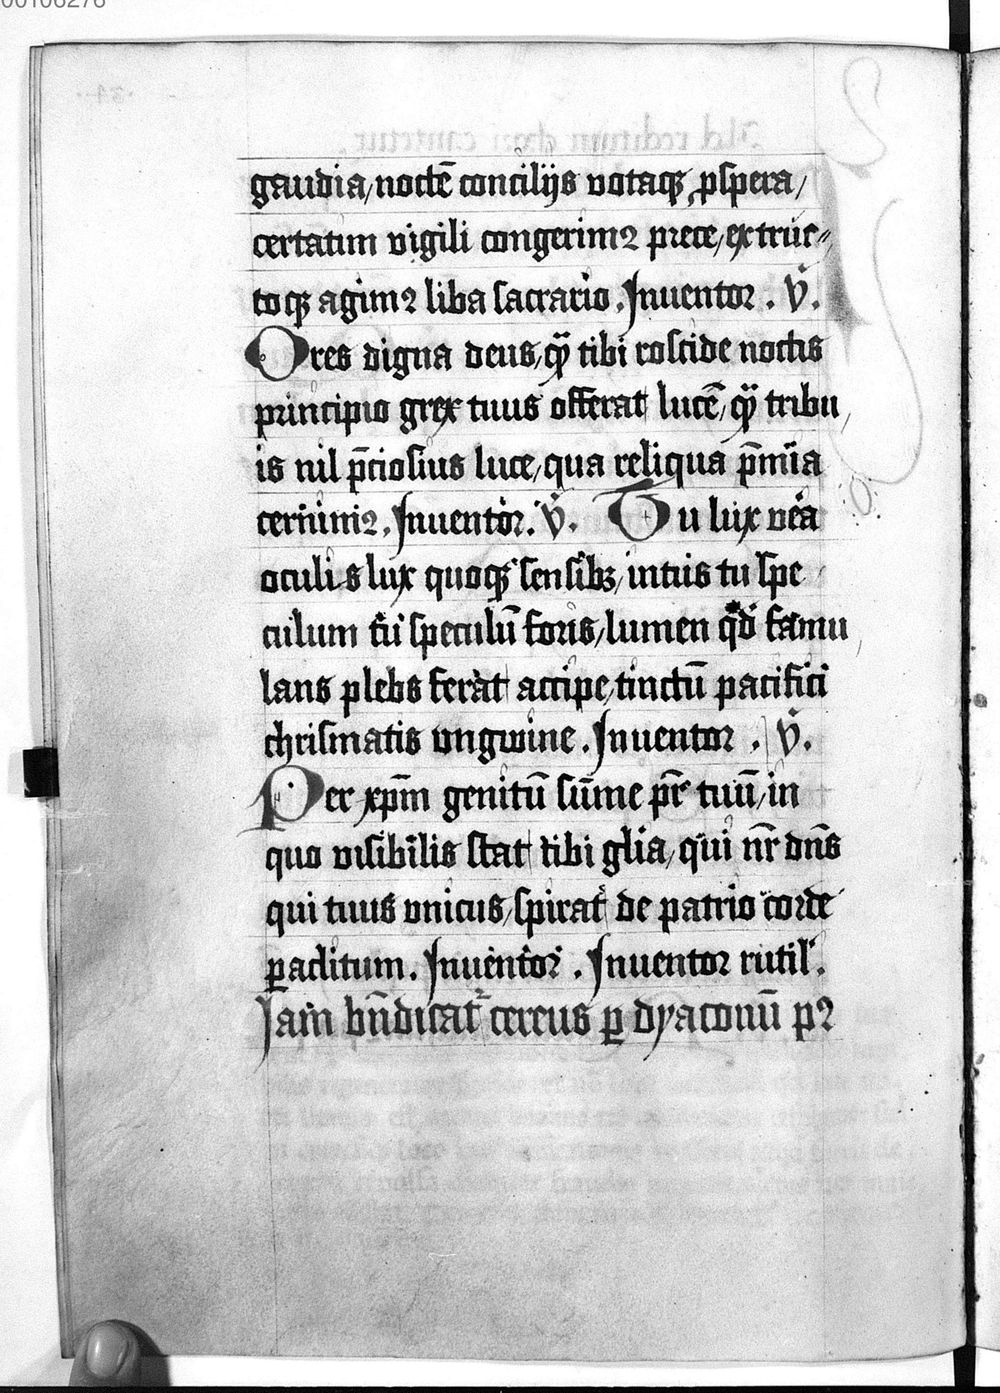 00106276
gaudia/noctē conciliĳs votaqꝫ ꝓspera/
certatim vigili congerimꝰ prece/extruc⸗
toqꝫ agimꝰ liba sacrario. Inuentor. V̓.
Ores digna deus/qͣ tibi roscide noctis
principio grex tuus offerat lucē/qͣ tribu
is nil p̄ciosius luce/qua reliqua p̄mia
cernimꝰ. Inuentor. V̓. Tu lux vera
oculis lux quoqꝫ sensibꝫ/intus tu spe
culum tu speculū foris/lumen qd̓ famu
lans plebs ferat accipe/tinctū pacifici
chrismatis vngwine. Inuentor. V̓.
Per xp̄m genitū sūme pr̄ tuū/in
quo visibilis stat tibi gl̄ia/qui nr̄ dn̄s
qui tuus vnicus/spirat de patrio corde
ꝑaclitum. Inuentor. Inuentor rutil̓.
Iam bn̄dicat᷑ cereus ꝑ dyaconū pꝰ